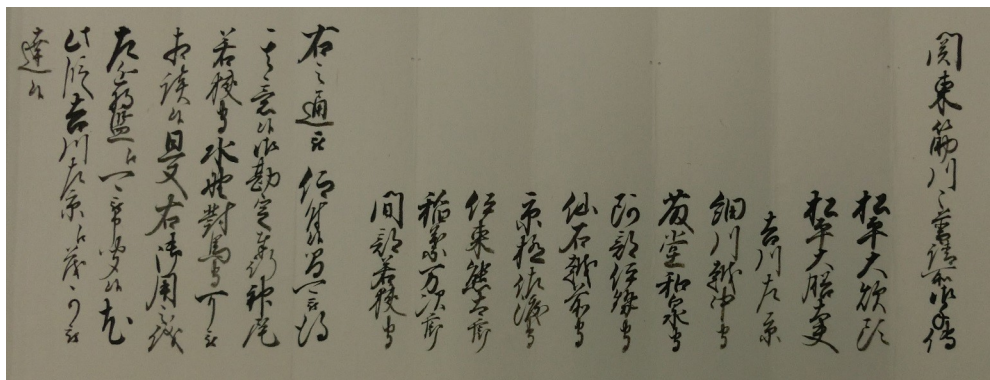 関東筋川々普請御手伝
松平大炊頭
松平大膳大夫
吉川左京
細川越中守
藤堂和泉守
阿部伊勢守
仙石越前守
京極佐渡守
伊東熊太郎
稲葉万次郎
間部若狭守
右之通被 仰付候間可被得
其意候御勘定奉行神尾
若狭守水野對馬守可被
相談候且又右御用之儀
候
此段吉川左京江茂可被
達候